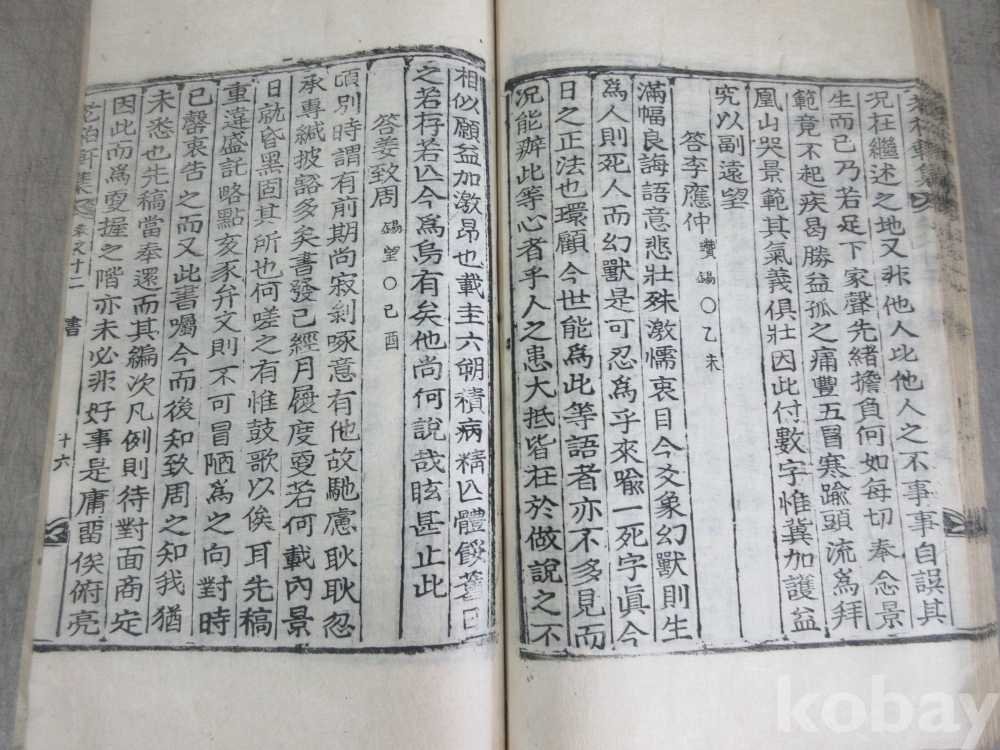 況在繼述之地又非他人比他人之不事事自誤其
生而已乃若足下家聲先緒擔負何如每切奉念景
範竟不起疾曷勝益孤之痛豐五冒寒踰頭流為拜
凰山哭景範其氣義俱壯因此付數字惟冀加護益
究以副遠望
答李應仲 纘錫○乙未
滿幅良誨語意悲壯殊激懦衷目今爻象幻獸則生
爲人則死人而幻獸是可忍爲乎來喩一死字眞今
日之正法也環顧今世能爲此等語者亦不多見而
況能辦此等心者乎人之患大抵皆在於做說之不
相似願益加激昂也載圭六朔積病精亾體餒
之若存若亾今爲烏有矣他尚何說哉眩甚止此
答姜致周 錫望○己酉
頃別時謂有前期尚寂剝啄意有他故馳慮耿耿忽
承專緘披豁多矣書發已經月履度更若何載內景
日就昏黑固其所也何嗟之有惟鼓歌以俟耳先稿
重違盛託略點亥豕弁文則不可冒陋爲之向對時
已罄衷告之而又此書囑今而後知致周之知我猶
未悉也先稿當奉還而其編次凡例則待對面商定
因此而爲更握之階亦未必非好事是庸留俟俯亮
老柏軒集 卷之十二 書 十六
kobay